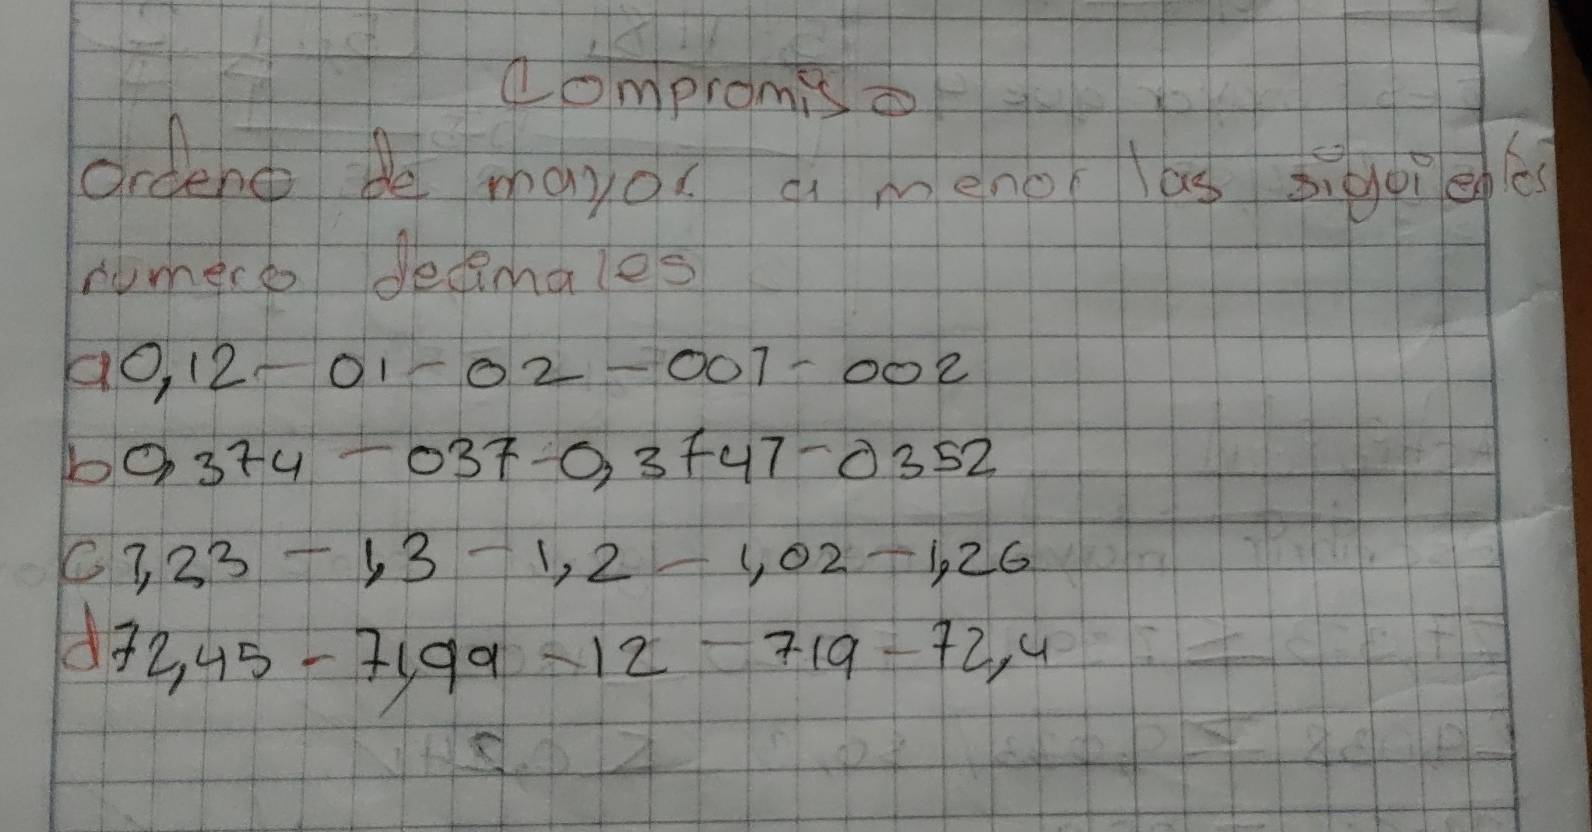 Compromiso
ordene de mayor a menor las siguientes
numero decimales
a 0,12 - 01 - 02 - 001 - 002
b 0,374 - 037 - 0,3747 - 0352
c 1,23 - 1,3 - 1,2 - 1,02 - 1,26
d 72,45 - 71,99 - 12 - 719 - 72,4